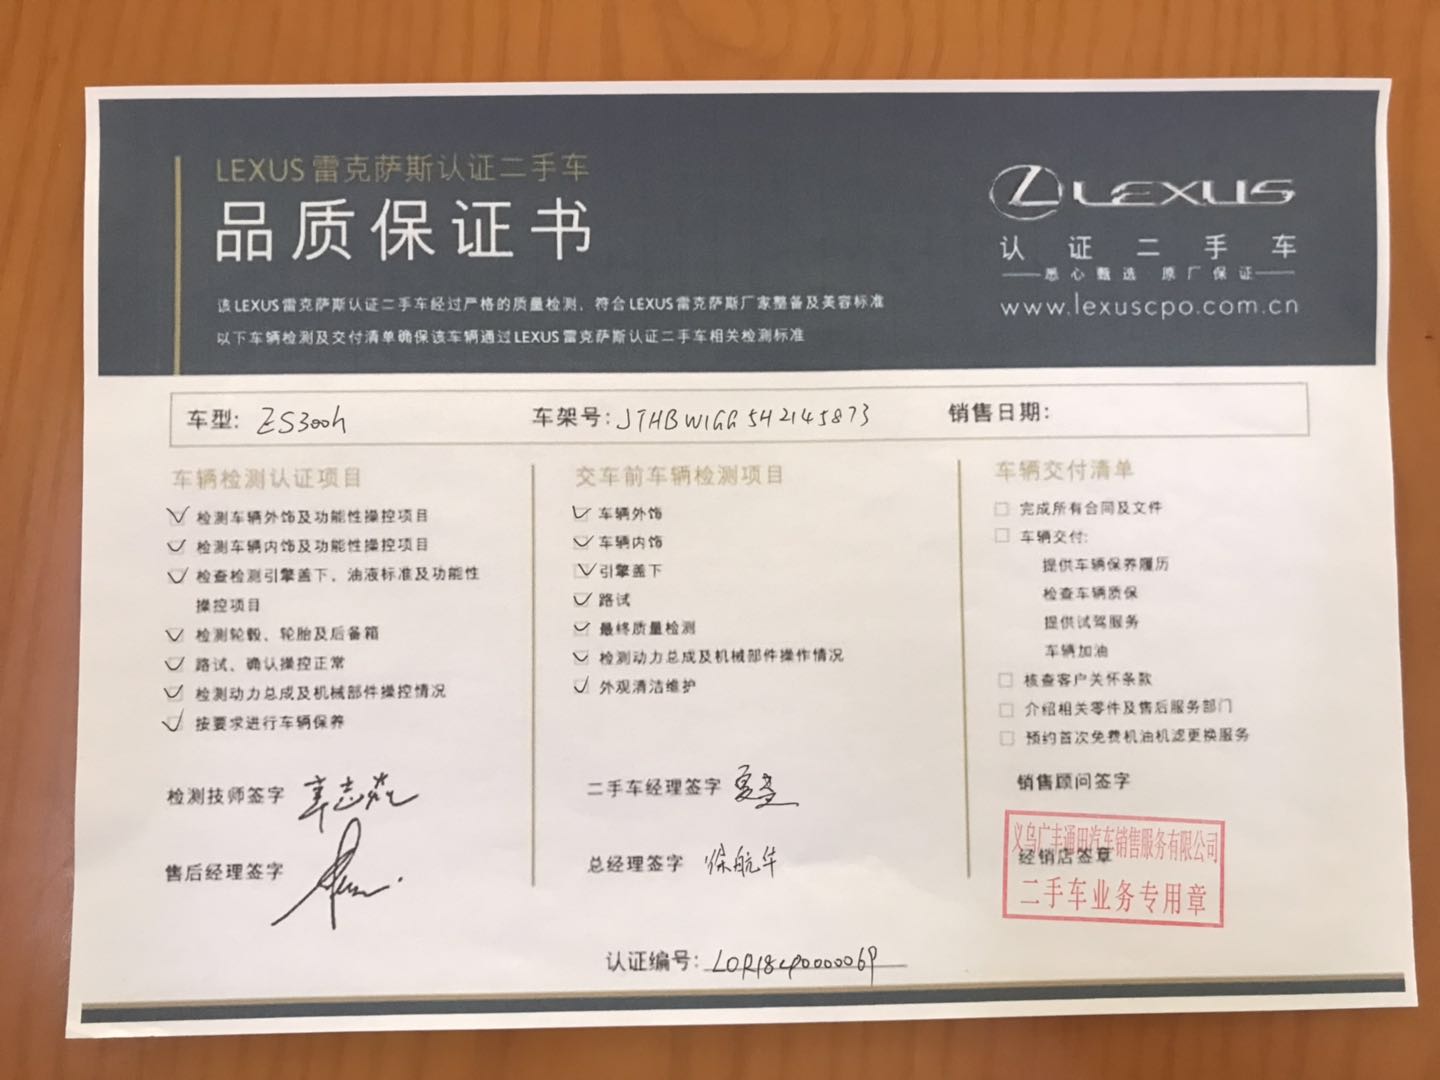 LEXUS 雷克萨斯认证二手车
品质保证书
该LEXUS雷克萨斯认证二手车经过严格的质量检测、符合LEXUS雷克萨斯厂家整备及美容标准
以下车辆检测及交付清单确保该车辆通过LEXUS雷克萨斯认证二手车相关检测标准
LEXUS
认证二手车
悉心甄选 原厂保证
www.lexuscpo.com.cn
车型: ES300h 车架号: JTHBW1GG5H2145873 销售日期:
车辆检测认证项目
检测车辆外饰及功能性操控项目
检测车辆内饰及功能性操控项目
检查检测引擎盖下、油液标准及功能性
操控项目
检测轮毂、轮胎及后备箱
路试、确认操控正常
检测动力总成及机械部件操控情况
按要求进行车辆保养
检测技师签字
售后经理签字
交车前车辆检测项目
车辆外饰
车辆内饰
引擎盖下
路试
最终质量检测
检测动力总成及机械部件操作情况
外观清洁维护
二手车经理签字
总经理签字 徐航华
车辆交付清单
完成所有合同及文件
车辆交付:
提供车辆保养履历
检查车辆质保
提供试驾服务
车辆加油
核查客户关怀条款
介绍相关零件及售后服务部门
预约首次免费机油机滤更换服务
销售顾问签字
义乌广丰通田汽车销售服务有限公司
经销店签章
二手车业务专用章
认证编号: